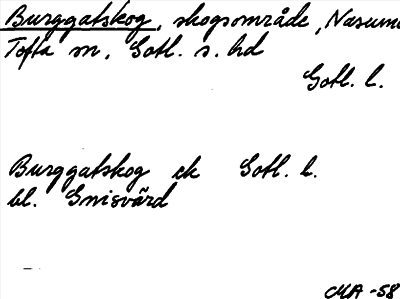 Burggatskog, skogsområde, Nasume
Tofta sn, Gotl. s. hd
Gotl. l.
Burggatskog ek Gotl. l.
bl. Gnisvärd
MA -58